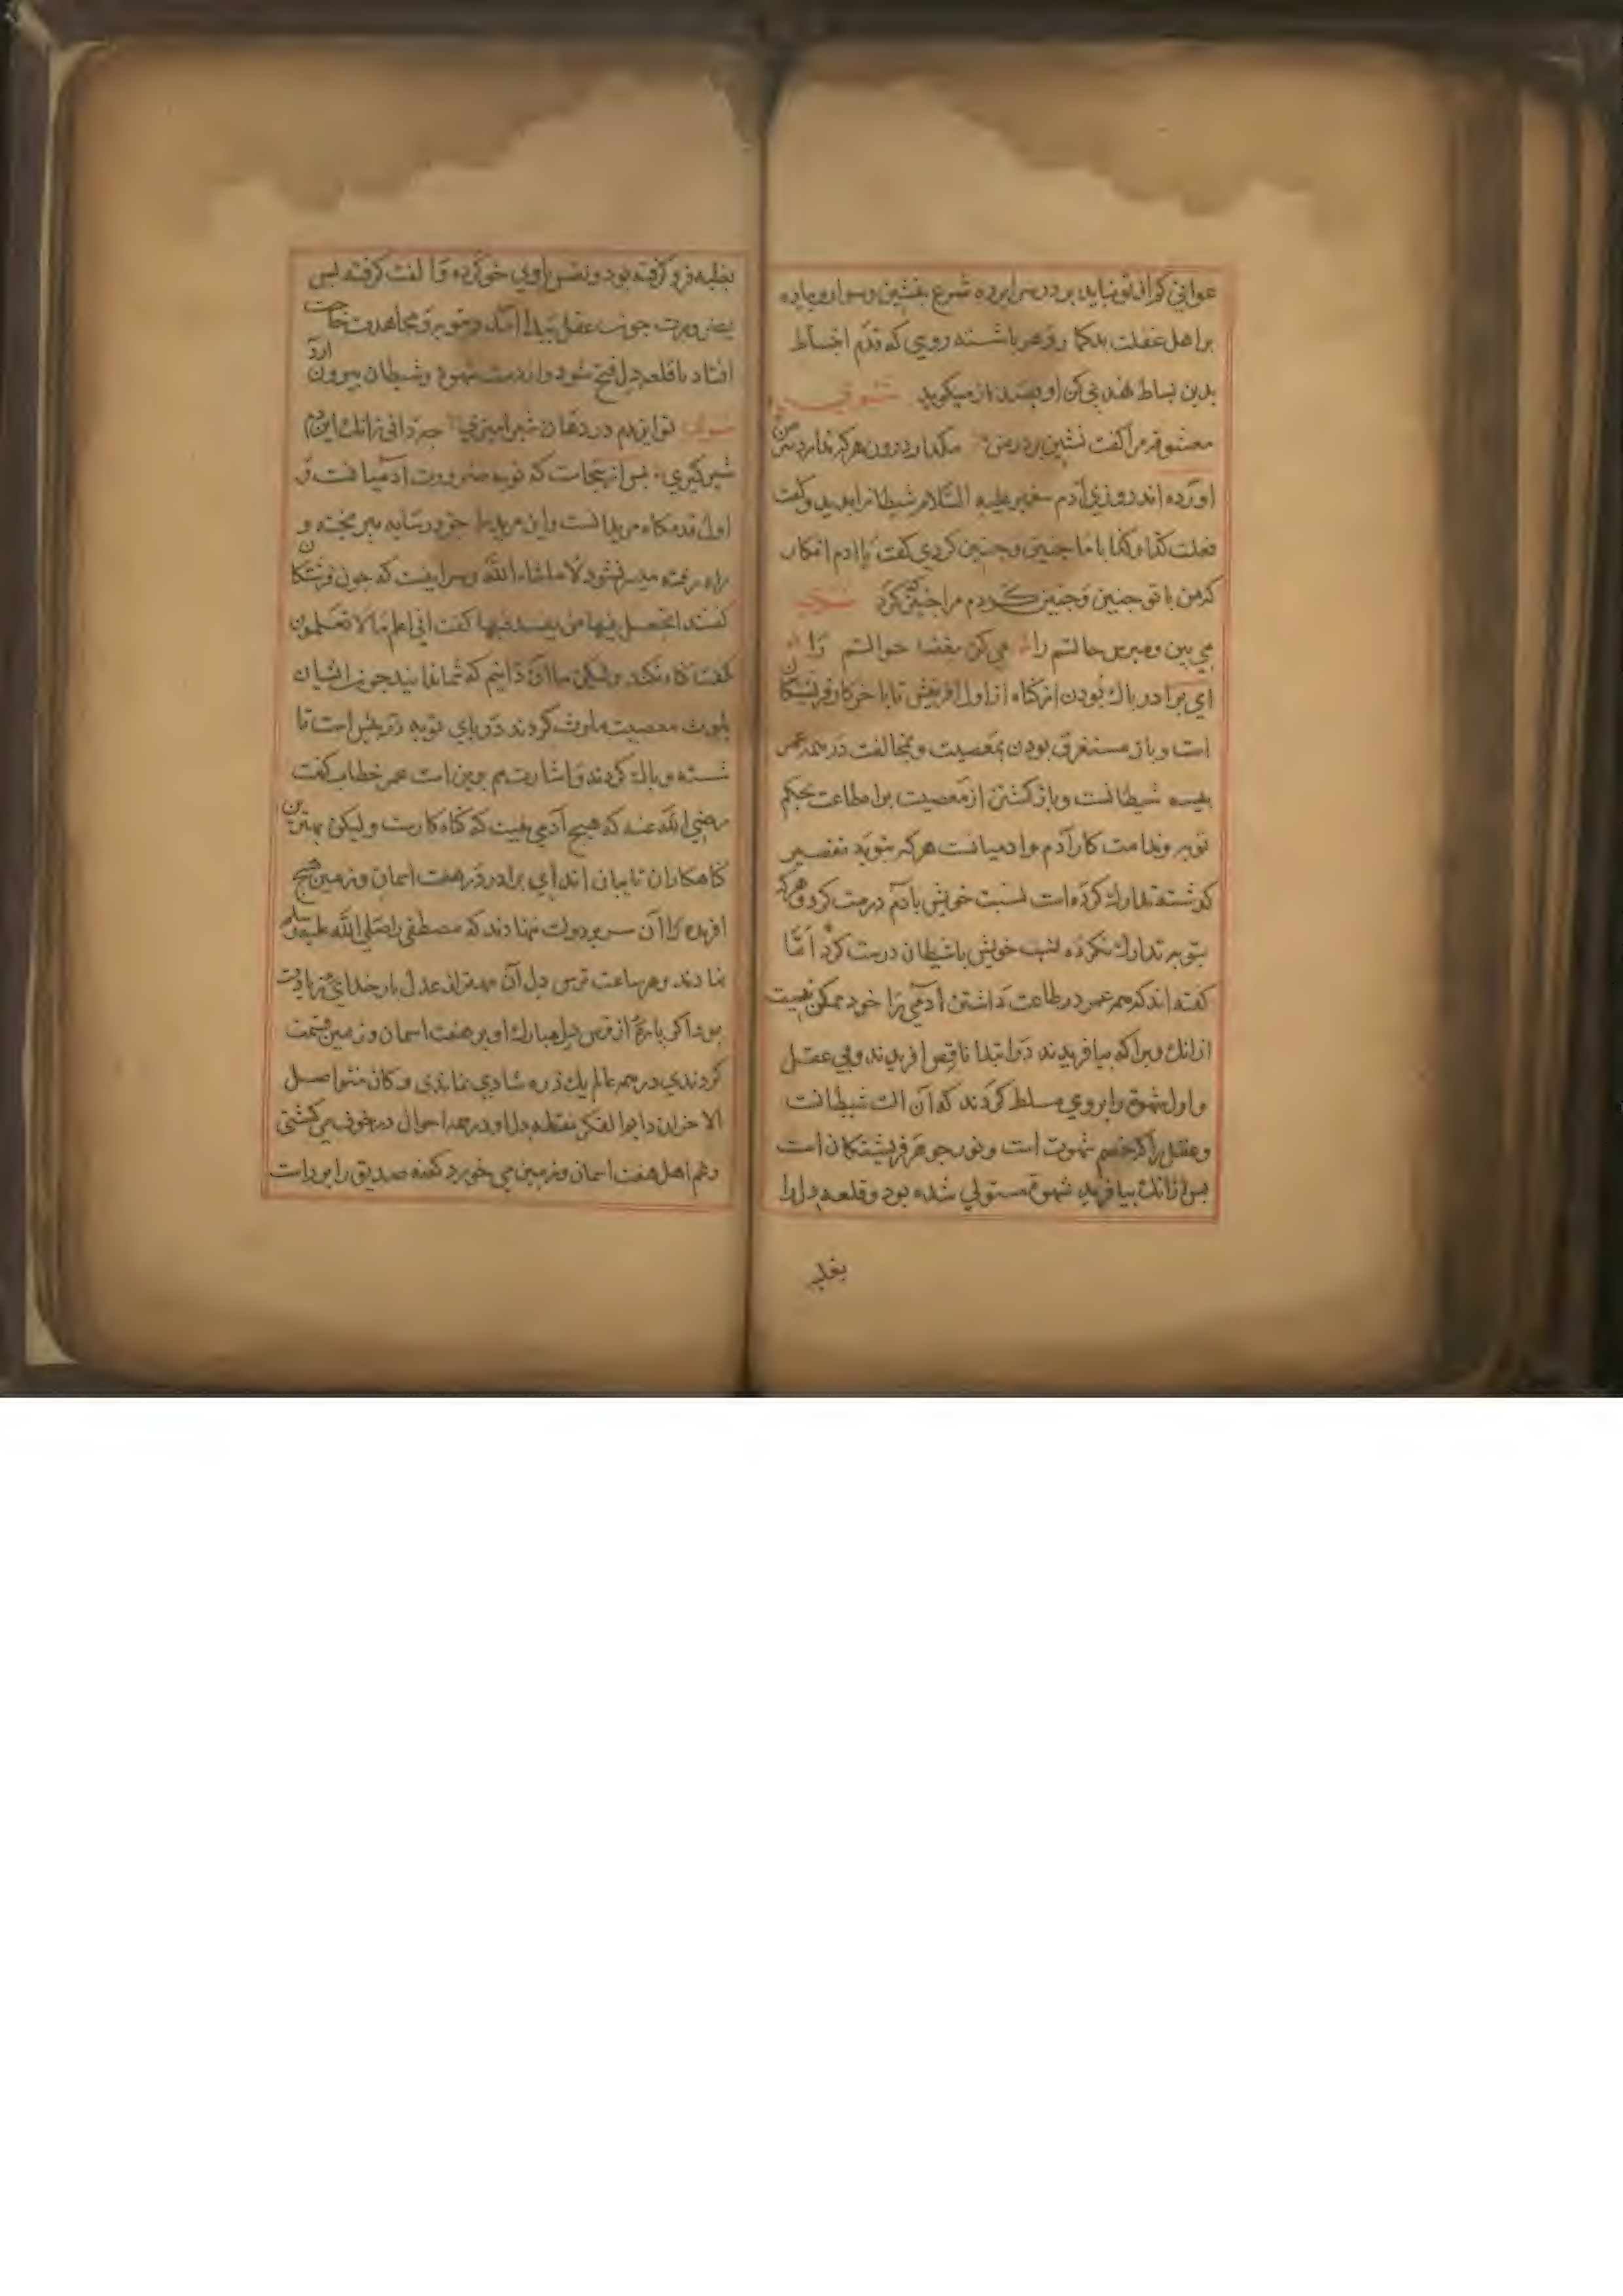 عوانی کر از تو نیاید بر در سرابرده شرع بنشین و سوار و بیاده
بر اهل غفلت بدکما رو هر باشسته روی که قدم اخساط
بدین بساط نهد بی کن او بسند باز میکوید
معشوقه مرا کفت نشین بر در من مکذار درون هرکه ندارد سر من
اورده اند روزی آدم سغمبر علیه السلام شیطانرا بدید و کفت
فعلت کذا و کذا با ما جنین و جنین کردی کفت یا ادم انکار
کذ من با تو جنین و جنین کردم مرا جنین که کرد
می بین و مبرس حالتم را می کن بقضا حوالتم را
ای برادر باک بودن از کناه از اول افرینش تا باخر کار فریشتکان
است و باز مستغرق بودن بمعصیت و مخالفت در همه عمر
بیسه شیطانست و باز کشتن از معصیت براه طاعت بحکم
توبه و ندامت کار آدم و ادمیانست هرکه بتوبه تقصیر
کذشته تدارک کرده است نسبت خویش با آدم درست کرد و هرکه
بتوبه تدارک نکرده نسبت خویش با شیطان درست کرد اما
کفته اند که همه عمر در طاعت داشتن آدمی را خود ممکن نیست
ازانک ویرا که بیافریدند در ابتدا ناقص افریدند و بی عقل
و اول شهوة را بر وی مسلط کردند که آن الت شیطانست
و عقل را که خصم شهوت است و نور جوهر فریشتکان است
بس ازانک بیافرید شهوة مستولی شده بود و قلعه دل را
بغلبه
بغلبه فرو کرفته بود و نفس با وی خو کرده و الفت کرفته بس
بضرورت جون عقل بیدا آمد و بتوبه و مجاهدت حاجت
افتاد تا قلعه دل فتح شود و از دست شهوة و شیطان بیرون آرد
تو این دم در دهان شیر امیری جه دانی زانک این دم
شیر کیری بس از ینجاست که توبه ضرورت آدمیانست و
اول قدمکاه مریدانست و این مرید را جز در سایه بیر بخته و
راه رفته میسر نشود الا ماشاء الله و سر اینست که جون فرشتکان
کفتند اتجعل فیها من یفسد فیها کفت انی اعلم ما لا تعلمون
کفت کناه نکند و لیکن ما آن دانیم که شما ندانید جون ایشان
بلوث معصیت ملوث کردند دریای توبه در بیش است تا
شسته و باک کردند و اشارت هم برین است عمر خطاب کفت
رضی الله عنه که هیج آدمی نیست که کناه کار نیست و لیکن بهترین
کناهکاران تایبان اند ای برادر در هفت اسمان و زمین هیج
افریده را آن سر بردولت ننهادند که مصطفی را صلی الله علیه وسلم
نهادند و هر ساعت ترس دل آن مهتر از عدل بار خدای زیادت
بود اکر باره از ترس دل مبارک او بر هفت اسمان و زمین قسمت
کردندی در همه عالم یک ذره شادی نماندی و کان متواصل
الاحزان دایم الفکر نقطه دل او در همه احوال در خوف می کشتی
و غم اهل هفت اسمان و زمین می خورد کفنه صدیق را بو راست